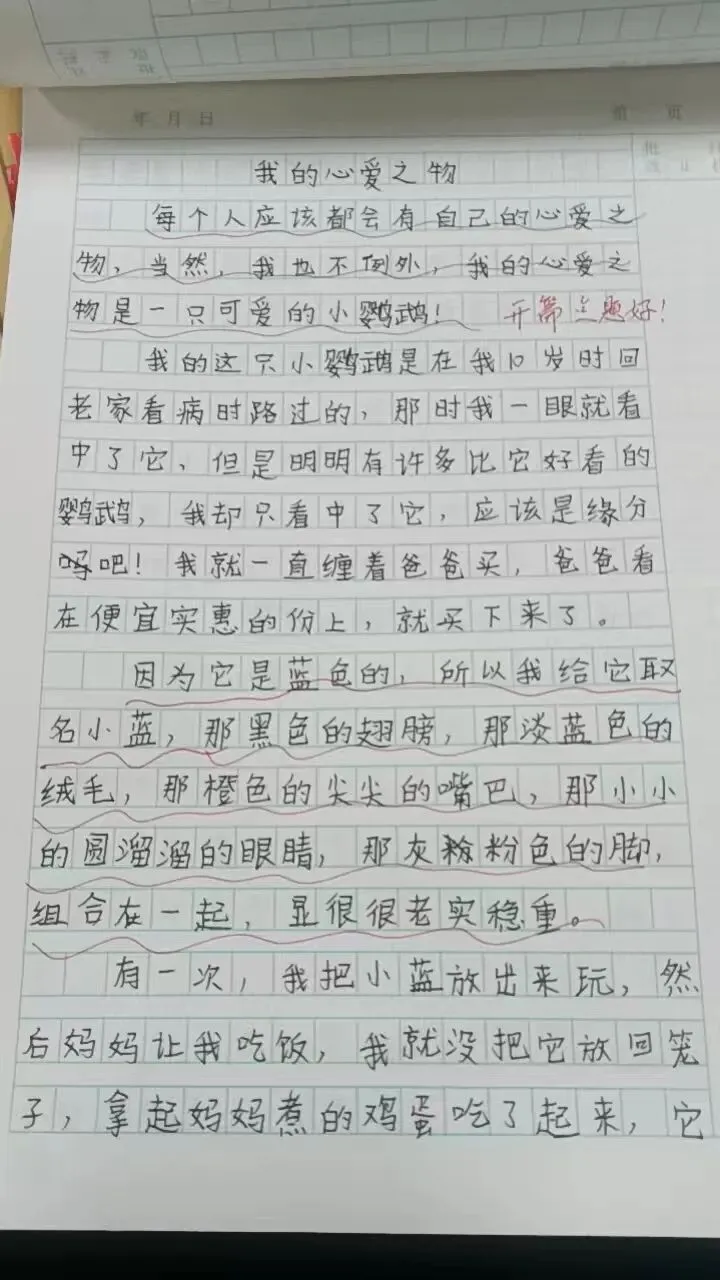 年 月 日
第 页
我的心爱之物
每个人应该都会有自己的心爱之
物，当然，我也不例外，我的心爱之
物是一只可爱的小鹦鹉！
开篇主题好！
我的这只小鹦鹉是在我10岁时回
老家看病时路过的，那时我一眼就看
中了它、但是明明有许多比它好看的
鹦鹉，我却只看中了它，应该是缘分
吧！我就一直缠着爸爸买，爸爸看
在便宜实惠的份上，就买下来了。
因为它是蓝色的，所以我给它取
名小蓝，那黑色的翅膀，那淡蓝色的
绒毛，那橙色的尖尖的嘴巴，那小小
的圆溜溜的眼睛，那灰粉色的脚，
组合在一起，显很很老实稳重。
有一次，我把小蓝放出来玩，然
后妈妈让我吃饭，我就没把它放回笼
子，拿起妈妈煮的鸡蛋吃了起来，它